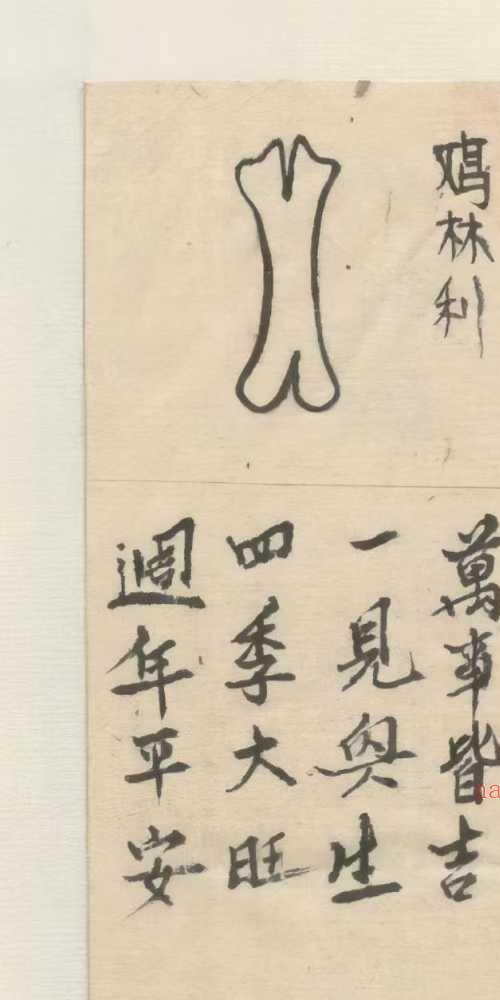 林利
萬事皆吉
一見與生
四季大旺
週年平安